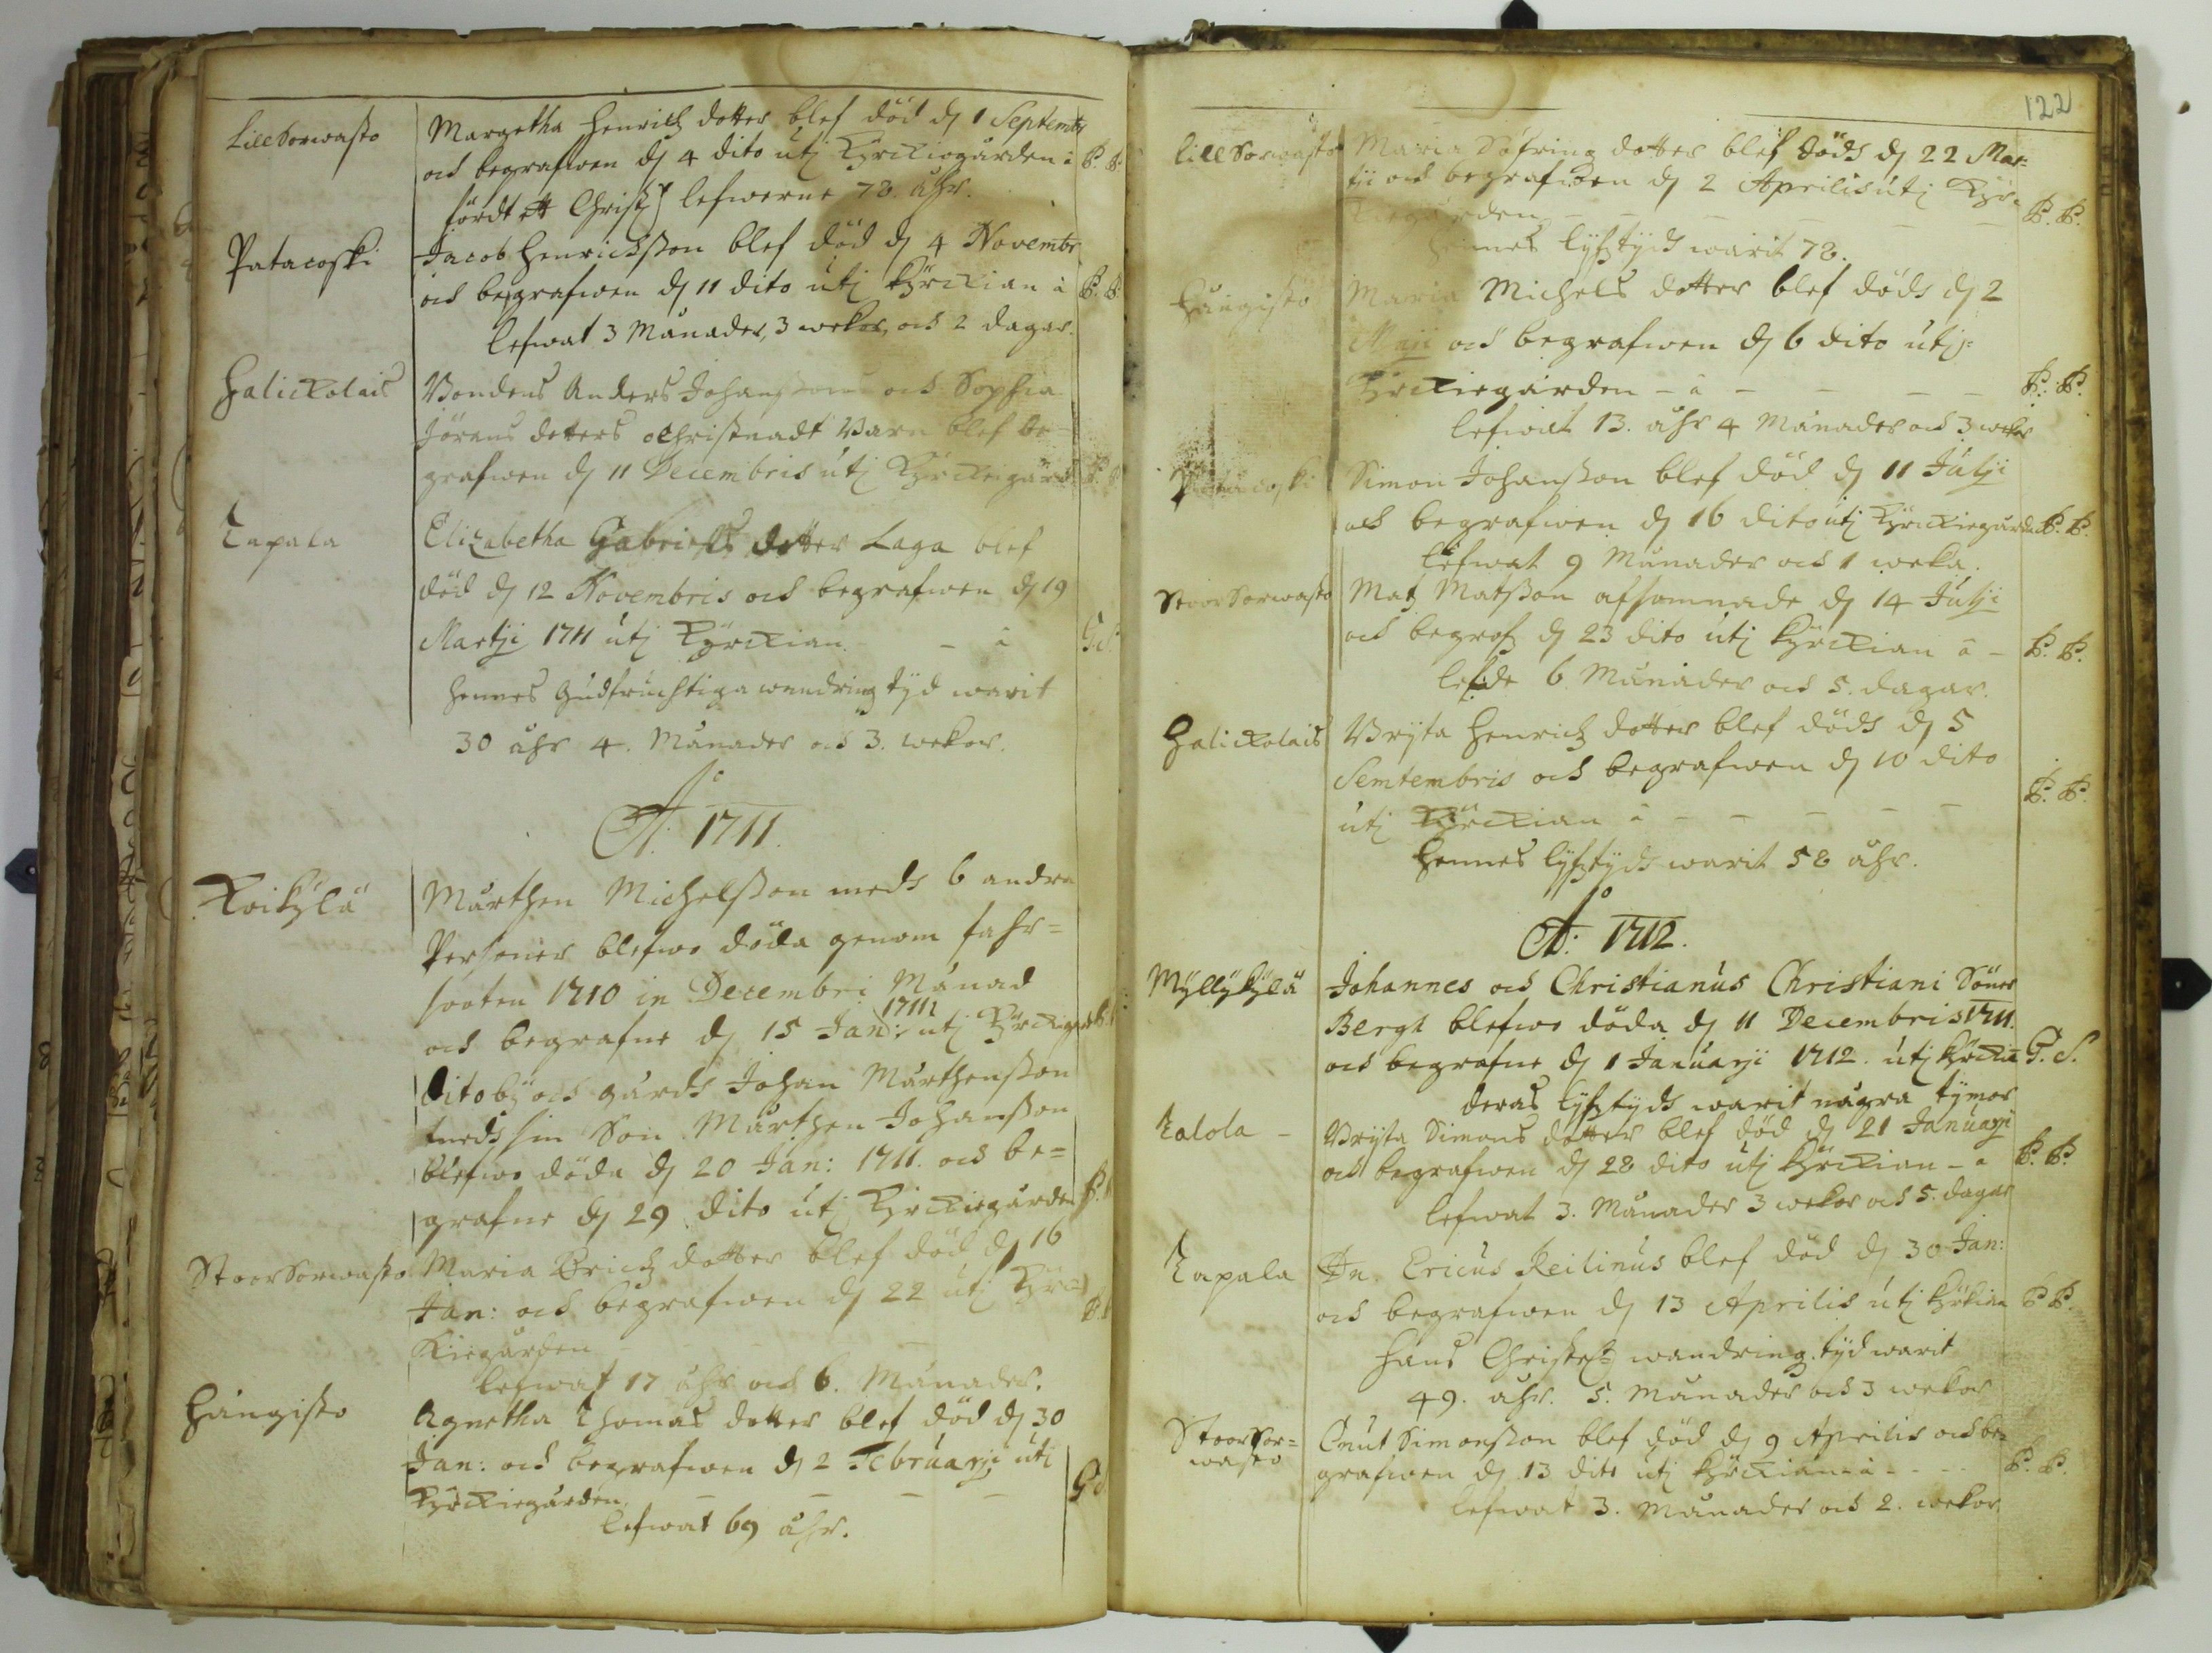 LillSorwasto Margetha Henrichz dotter blef död dj 1 Septembr
och begrafwen dj 4 dito utj Kyrckiogården ä B. B.
fördt ett Christl lefwerne 78. åhr.
Patacoski Jacob Henrichsson blef död dj 4 Novembr
och begrafwen dj 11 dito utj Kyrckian ä B. B.
lefwat 3 Månader, 3 wekor, och 2 dagar.
Halickolais Bondens Anders Johanssons och Sophia
Jörans dotters ochristnadt Barn blef be-
grafwen dj 11 Decembris utj Kyrckeigård
Tapala Elizabetha Gabriels dotter Laga blef
död dj 12 Novembris och begrafwen dj 19
Martji 1711 utj Kyrckian. - ä G. S.
hennes Gudfruchtiga wandring tyd warit
30 åhr 4. Månader och 3. wekor.
Ao: 1711.
Koikylä Mårthen Michelsson meds 6 andra
Personer blefwo döda genom fahr=
sooten 1710 in Decembri Månad
1711
och begrafne dj 15 Jan: utj Kyrckiegård
Dito by och gårds Johan Mårthensson
meds sin Son Mårthen Johansson
blefwo döda dj 20 Jan: 1711. och be=
grafne dj 29 dito utj Kyrckiegården B.
StoorSorwasto Maria Erichz dotter blef död dj 16
Jan: och begrafwen dj 22 utj Kyrc=
Kiegården
lefwat 17 åhr och 6. Månader.
Hångisto Agnetha Thomas dotter blef död dj 30
Jan: och begrafwen dj 2 Februarji utj
Kyrckiegården. - - - - G S
lefwat 69 åhr.
122
LillSorwasto Maria Söfring dotter blef döds dj 22 Mar=
tii och begrafwen dj 2 Aprilis utj Kyr=
Kiegården - - - - B. B.
hennes lyfztyds warit 78.
Hångisto Maria Michels dotter blef döds dj 2
Maji och begrafwen dj 6 dito utj=
Kyrckiegården - ä - - - - B. B.
lefwat 13. åhr 4 Månader och 3 wekor
Patacoski Simon Johansson blef död dj 11 Julji
och begrafwen dj 16 dito utj Kyrckiegården B. B.
lefwat 9 Månader och 1 weka.
StoorSorwasto Matz Matsson afsomnade dj 14 Julji
och begrofz dj 23 dito utj Kyrckian ä - B. B.
lefde 6 Månader och 5. dagar.
Halickolais Bryta Henrichz dotter blef döds dj 5
Semtembris och begrafwen dj 10 dito
utj Kyrckian ä - - - - - B. B.
Hennes lyfztyds warit 58 åhr.
Ao: 1712.
Myllykylä Johannes och Christianus Christiani Söner
Bergh blefwo döda dj 11 Decembris 1711.
och begrafne dj 1 Januarji 1712. utj Kyrckia G. S.
deras lyfztyds warit några tymor
Talola - Bryta Simons dotter blef död dj 21 Januarji
och begrafwen dj 28 dito utj Kyrckian - ä B. B.
lefwat 3. Månader 3 wekor och 5. dagar
Tapala Dn. Ericus Keilinus blef död dj 30 Jan:
och begrafwen dj 13 Aprilis utj Kyrkian B B.
hans Christelig wandring tyd warit
49. åhr. 5. Månader och 3 wekor
StoorSor= Cnut Simonsson blef död dj 9 Aprilis och be=
wasto grafwen dj 13 dito utj Kyrckian - ä - - - B. B.
lefwat 3. Månader och 2. wekor